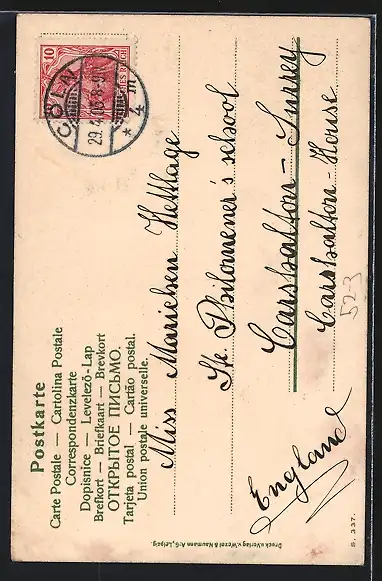 Postkarte
Carte Postale — Cartolina Postale
Correspondenzkarte
Dopisnice — Levelező-Lap
Brefkort — Briefkaart — Brevkort
ОТКРЫТОЕ ПИСЬМО.
Tarjeta postal — Cartão postal.
Union postale universelle.
10
CÖLN
29.4.
* 4 m
Miss Mariechen Hettlage
Ste Philomener's school
Carshalton - Surrey
Carshalton - House
England
523
Druck u Verlag v. Wezel & Naumann A.-G., Leipzig.
S. 337.